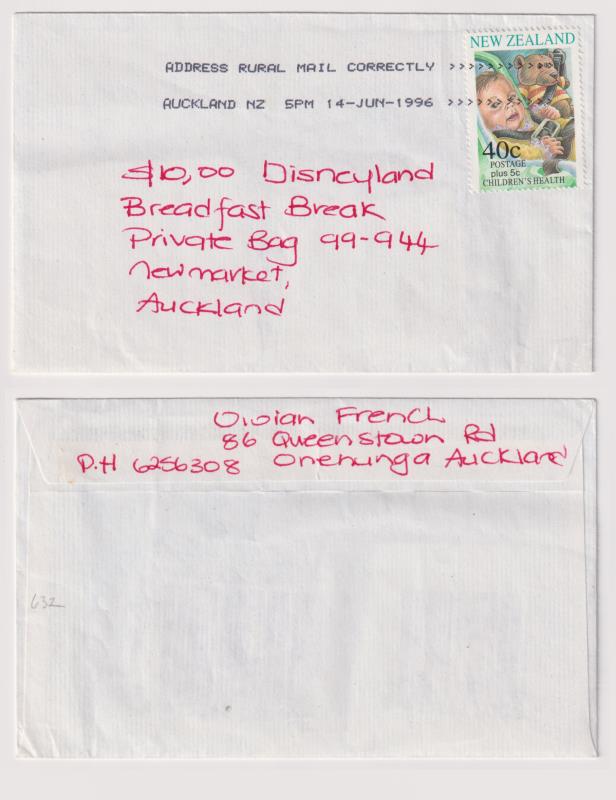 NEW ZEALAND
ADDRESS RURAL MAIL CORRECTLY >>>>>>>>>>
AUCKLAND NZ 5PM 14-JUN-1996 >>>>>>>>>>
40c
POSTAGE
plus 5c
CHILDREN'S HEALTH
$10,00 Disneyland
Breadfast Break
Private Bag 99-944
Newmarket,
Auckland
Vivian French
86 Queenstown Rd
P.H 6256308 Onehunga Auckland
632